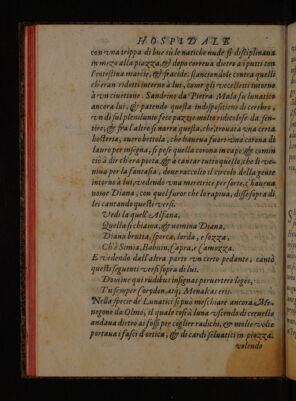 HOSPIDALE
con vna trippa di bue sù le natiche nude si disciplinaua
in mezo alla piazza, & dopo correua dietro a i putti con
l'intestina marcie, & fracide, slanciandole contra quelli
ch'eran ridotti intorno a lui, come gli vccelletti intorno
à vn ciuettone. Sandrino da Pietra Mala fu lunatico
ancora lui, & patendo questa indispositione di cerebro,
vn dì sul plenilunio fece pazzie molto ridicolose da sen-
tire, & fra l'altro si narra questa, che trouata vna certa
hosteria, ouero bettola, che haueua fuori vna corona di
lauro per insegna, si pose quella corona in capo, & comin
ciò à dir ch'era poeta, & à cantar tutto quello, che li ve-
niua per la fantasia, doue raccolto il circolo della gente
intorno à lui, vedendo vna meretrice per sorte, c'haueua
nome Diana, con quel furor che lo rapiua, disse sopra di
lei cantando questi versi.
Vedi la quell'Alfana,
Questa si chiama, & nomina Diana,
Diana brutta, sporca, lorda, e sozza,
Ch'à Simia, Babuin, Capra, e Camozza.
E vedendo dall'altra parte vn certo pedante, cantò
questi seguenti versi sopra di lui.
Domine qui rudibus insignas peruertere leges,
Tu semper Corydon, atq; Menalcas eris.
Nella specie de' Lunatici si può meschiare ancora Me-
negone da Olmo, il quale cosi à luna vscendo di ceruello
andaua dietro ai fossi per coglier radichi, & molte volte
portaua i fasci d'ortica, & di cardi seluatici in piazza.
volendo